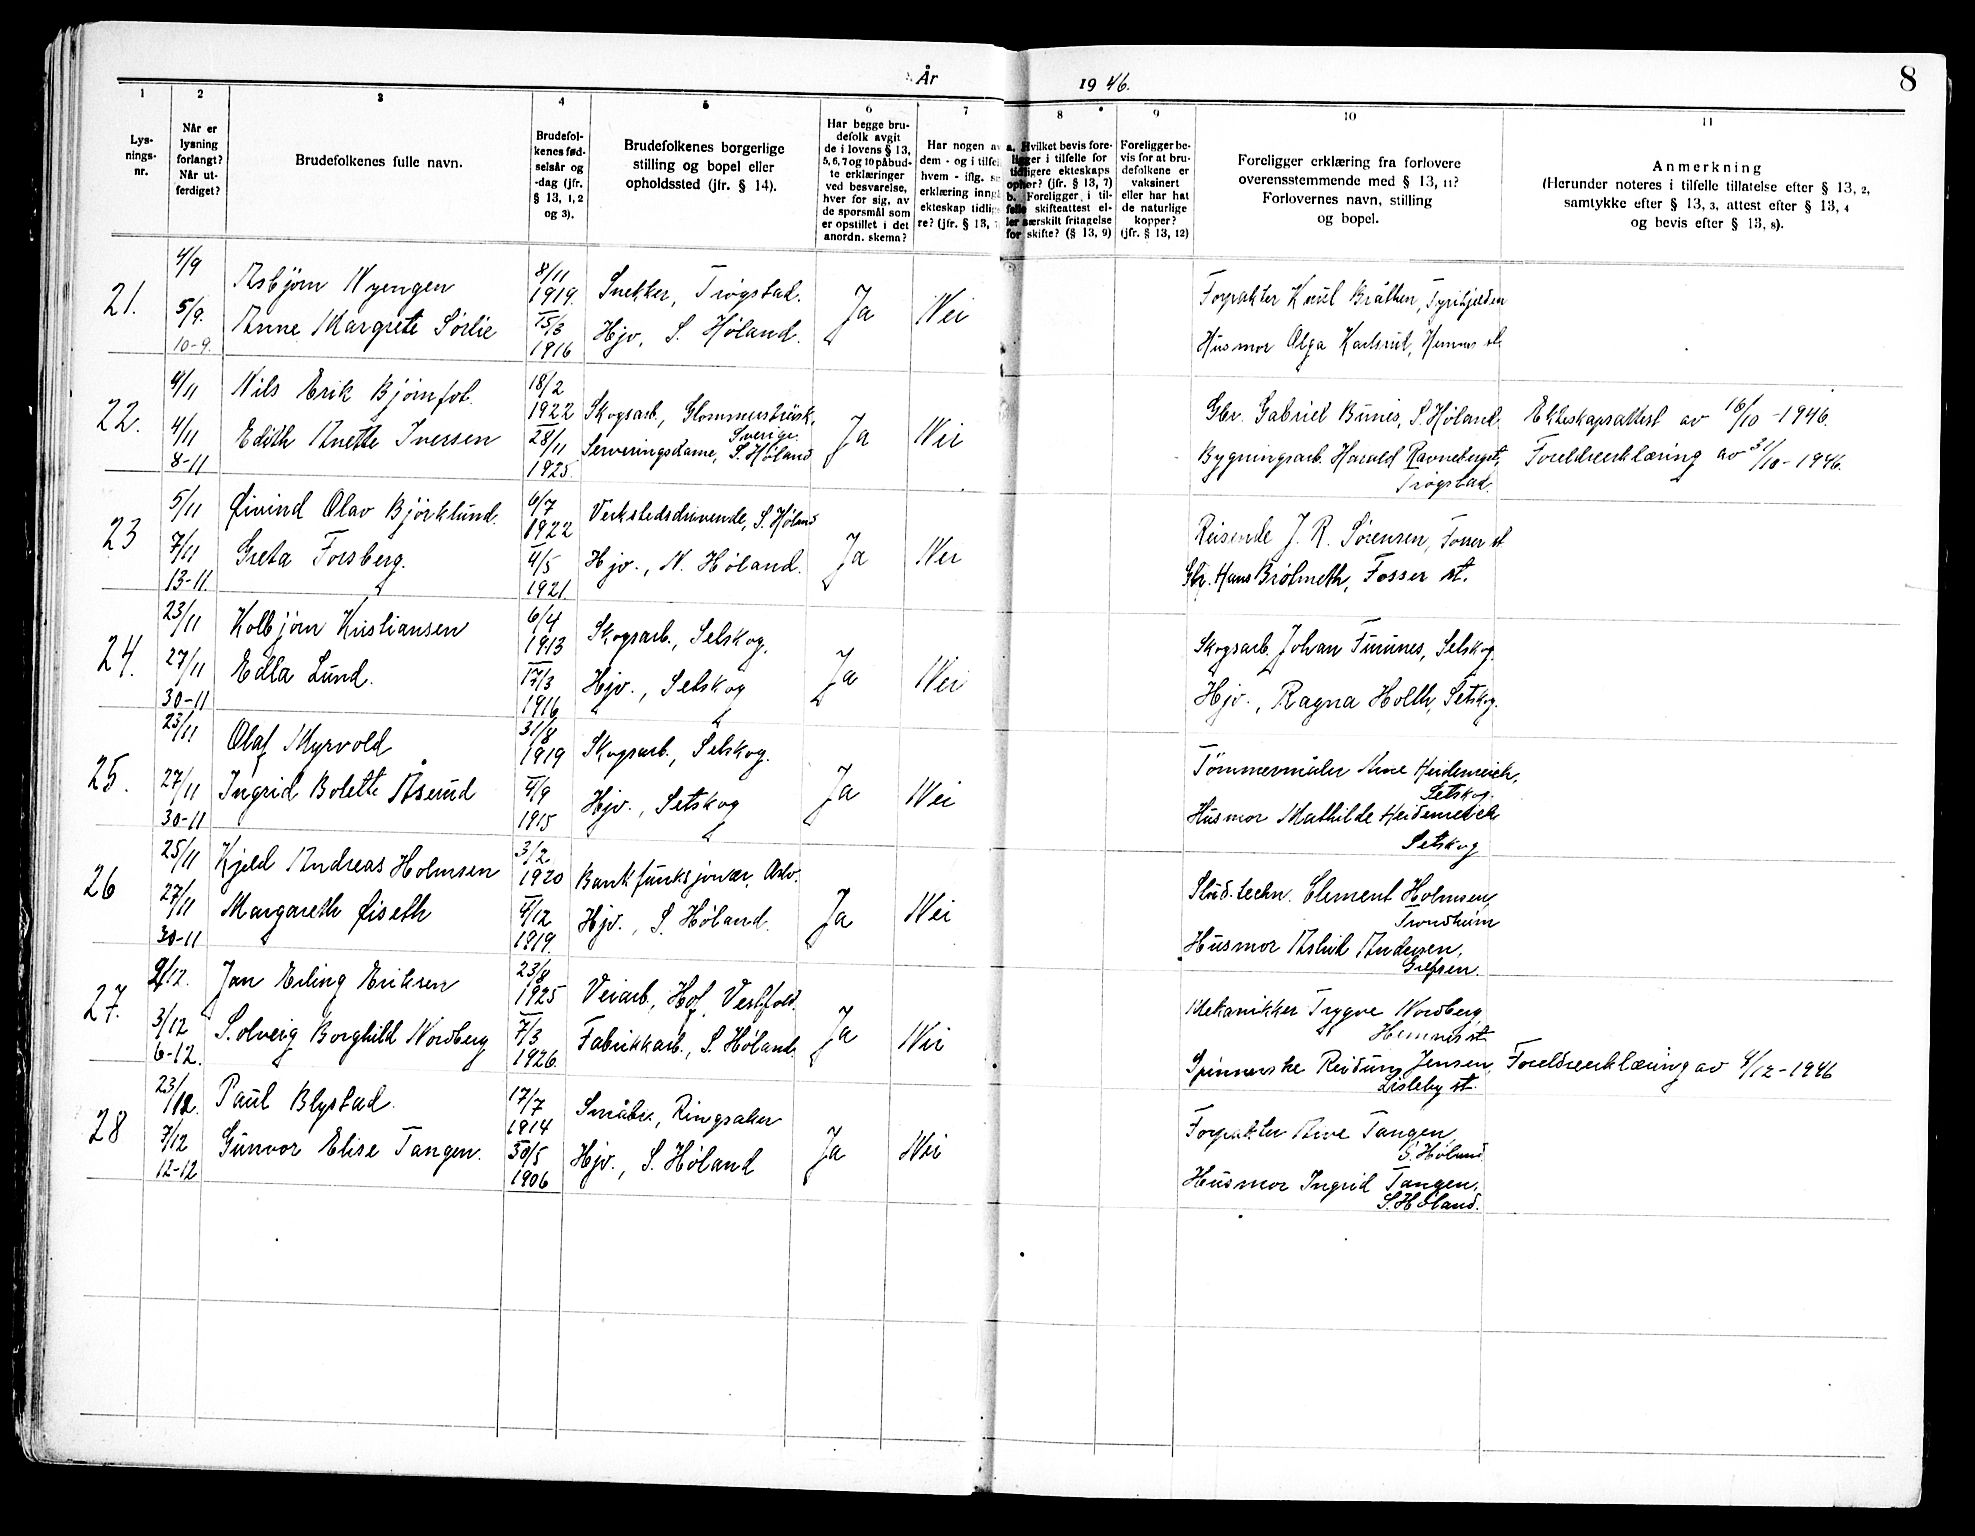 År 1946.
8
1
2
3
4
5
6
7
8
9
10
11
Lys-
nings-
nr.
Når er
lysning
forlangt?
Når ut-
ferdiget?
Brudefolkenes fulle navn.
Brudefol-
kenes fød-
selsår og
-dag (jfr.
§ 13, 1, 2
og 3).
Brudefolkenes borgerlige
stilling og bopel eller
opholdssted (jfr. § 14).
Har begge bru-
defolk avgit
de i lovens § 13,
5, 6, 7 og 10 påbud-
te erklæringer
ved besvarelse,
hver for sig, av
de spørsmål som
er opstillet i det
anordn. skema?
Har nogen av
dem - og i tilfel
hvem - iflg. s
erklæring inngå
ekteskap tidlig
re? (jfr. § 13,
a. Hvilket bevis fore-
ligger i tilfelle for
tidligere ekteskaps
ophør? (jfr. § 13, 7)
b. Foreligger i til-
felle skifteattest el-
ler særskilt fritagelse
for skifte? (§ 13, 9)
Foreligger be-
vis for at bru-
defolkene er
vaksinert
eller har hat
de naturlige
kopper?
(jfr. § 13, 12)
Foreligger erklæring fra forlovere
overensstemmende med § 13, 11?
Forlovernes navn, stilling
og bopel.
Anmerkning
(Herunder noteres i tilfelle tillatelse efter § 13, 2,
samtykke efter § 13, 3, attest efter § 13, 4
og bevis efter § 13, 8).
21.
4/9
5/9.
10-9.
Asbjørn Nyengen
Anne Margrete Sørlie
8/11
1919.
15/3
1916
Snekker, Trøgstad.
Hjv, S. Høland.
Ja
Nei
Forpakter Knut Bråthen,
Husmor Olga Karlsrud, Hemnes st.
22.
4/11
4/11
8-11
Nils Erik
Edith Anette Iversen
18/2
1922
28/11
1925.
Skogsarb., Glommerstrásk,
Sverige.
Serveringsdame, S. Høland
Ja
Nei
Gbr. Gabriel Bunes, S. Høland
Bygningsarb. Harald Ravneberget,
Trøgstad.
Ekteskapsattest av 16/10-1946.
Foreldreerklæring av 31/10-1946.
23
5/11
7/11
13-11.
Øivind Olav Bjørklund.
Greta Forsberg.
6/7
1922
4/5
1921
Verkstedsdrivende, S. Høland
Hjv., N. Høland.
Ja
Nei
Reisende J. R. Sørensen, Fosser st
Gbr. Hans Brølmeth, Fosser st.
24.
23/11
27/11
30-11
Kolbjørn Kristiansen
Edla Lund.
6/4
1913
17/3
1916
Skogsarb., Setskog.
Hjv., Setskog
Ja
Nei
Skogsarb. Johan Furunes, Setskog.
Hjv., Ragna Holth, Setskog.
25.
23/11
27/11
30-11
Olaf Myrvold
Ingrid Bolette Åserud
31/8
1919
4/9
1915
Skogsarb., Setskog.
Hjv., Setskog
Ja
Nei
Tømmermåler Arne Heidenreich,
Setskog.
Husmor Mathilde Heidenreich
Setskog
26
25/11
27/11
30-11
Kjeld Andreas Holmsen
Margareth Øiseth
3/2
1920
4/12
1919.
Bankfunksjonær, Oslo.
Hjv., S. Høland.
Ja
Nei
Stud. techn. Clement Holmsen,
Trondheim
Husmor Astrid Andersen,
Grefsen.
27.
2/12.
3/12
6-12.
Jan Erling Eriksen
Solveig Borghild Nordberg
23/8
1925
7/3
1926.
Veiarb., Hof, Vestfold.
Fabrikkarb., S. Høland
Ja
Nei
Mekanikker Trygve Nordberg,
Hemnes st.
Spinnerske Reidung Jensen,
Lisleby st.
Foreldreerklæring av 4/12-1946
28
23/12.
7/12
12-12
Paul Blystad.
Gunvor Elise Tangen.
17/7
1914
30/5
1906
Småbr., Ringsaker
Hjv., S. Høland
Ja
Nei
Forpakter Arve Tangen,
S. Høland
Husmor Ingrid Tangen,
S. Høland.